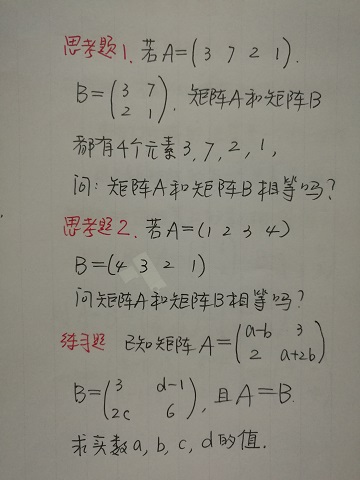 思考题1. 若A=(3 7 2 1).
B=(3 7
2 1). 矩阵A和矩阵B
都有4个元素3,7,2,1,
问:矩阵A和矩阵B相等吗?
思考题2. 若A=(1 2 3 4)
B=(4 3 2 1)
问矩阵A和矩阵B相等吗?
练习题 已知矩阵A=(a-b 3
2 a+2b)
B=(3 d-1
2c 6), 且A=B.
求实数a,b,c,d的值.